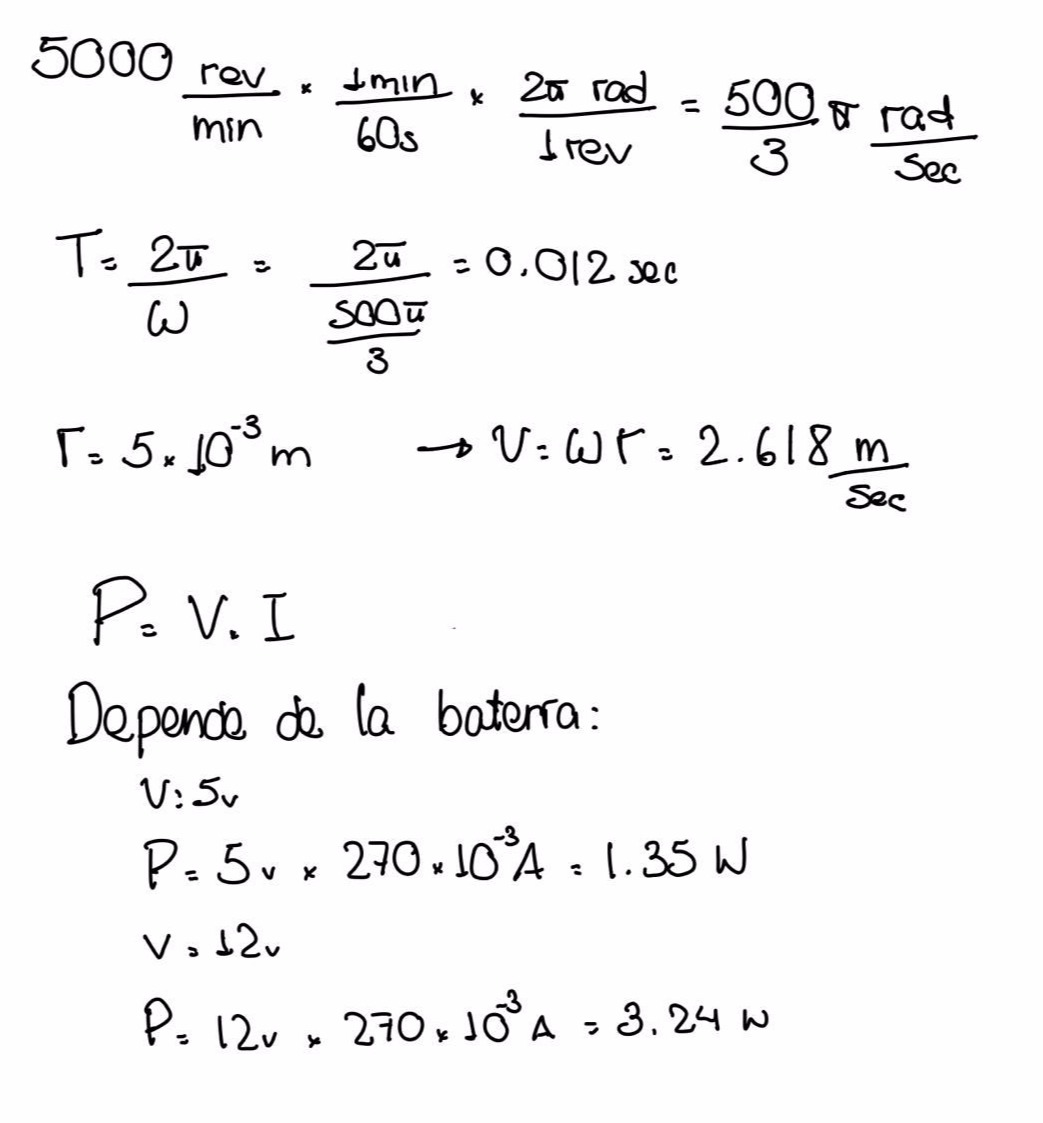 5000 rev/min × 1min/60s × 2π rad/1rev = 500/3 π rad/sec
T = 2π/ω = 2π/(500π/3) = 0.012 sec
r = 5×10⁻³ m → v = ωr = 2.618 m/sec
P = V. I
Depende de la baterra:
V: 5v
P = 5v × 270×10⁻³A = 1.35 W
V = 12v
P = 12v × 270×10⁻³ A = 3.24 W